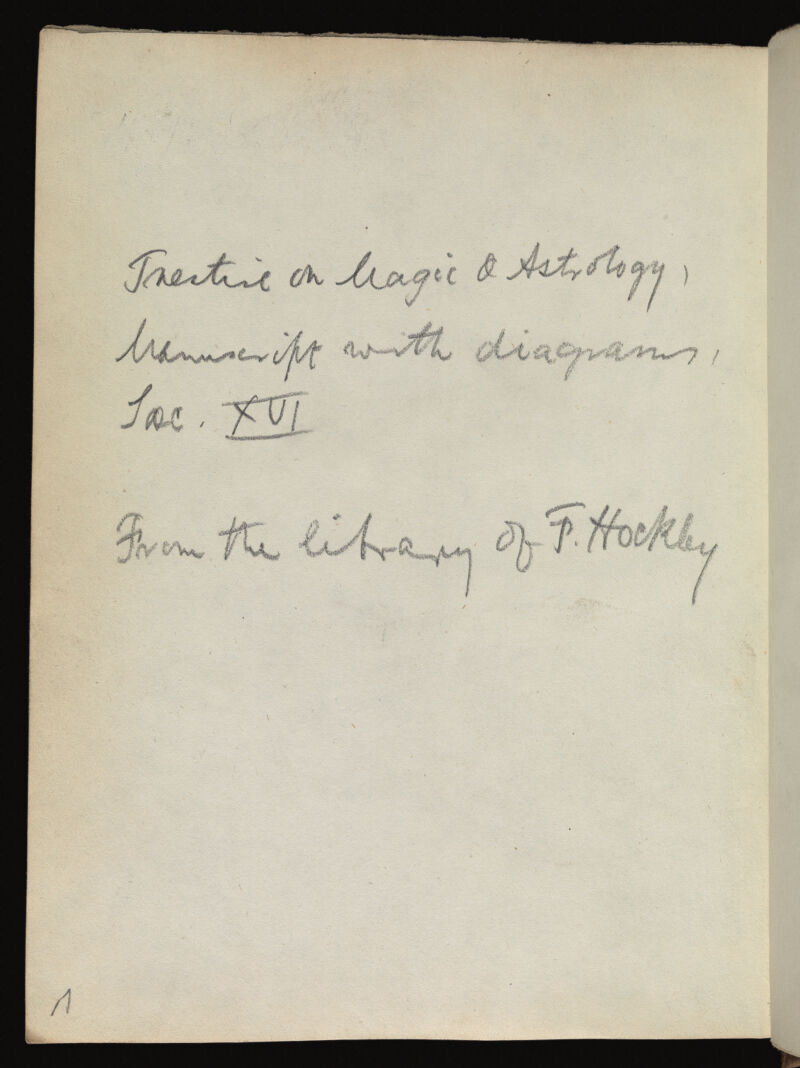 Treatise on Magic & Astrology,
Manuscript with diagrams,
Saec. XVI
From the library of F. Hockley
1